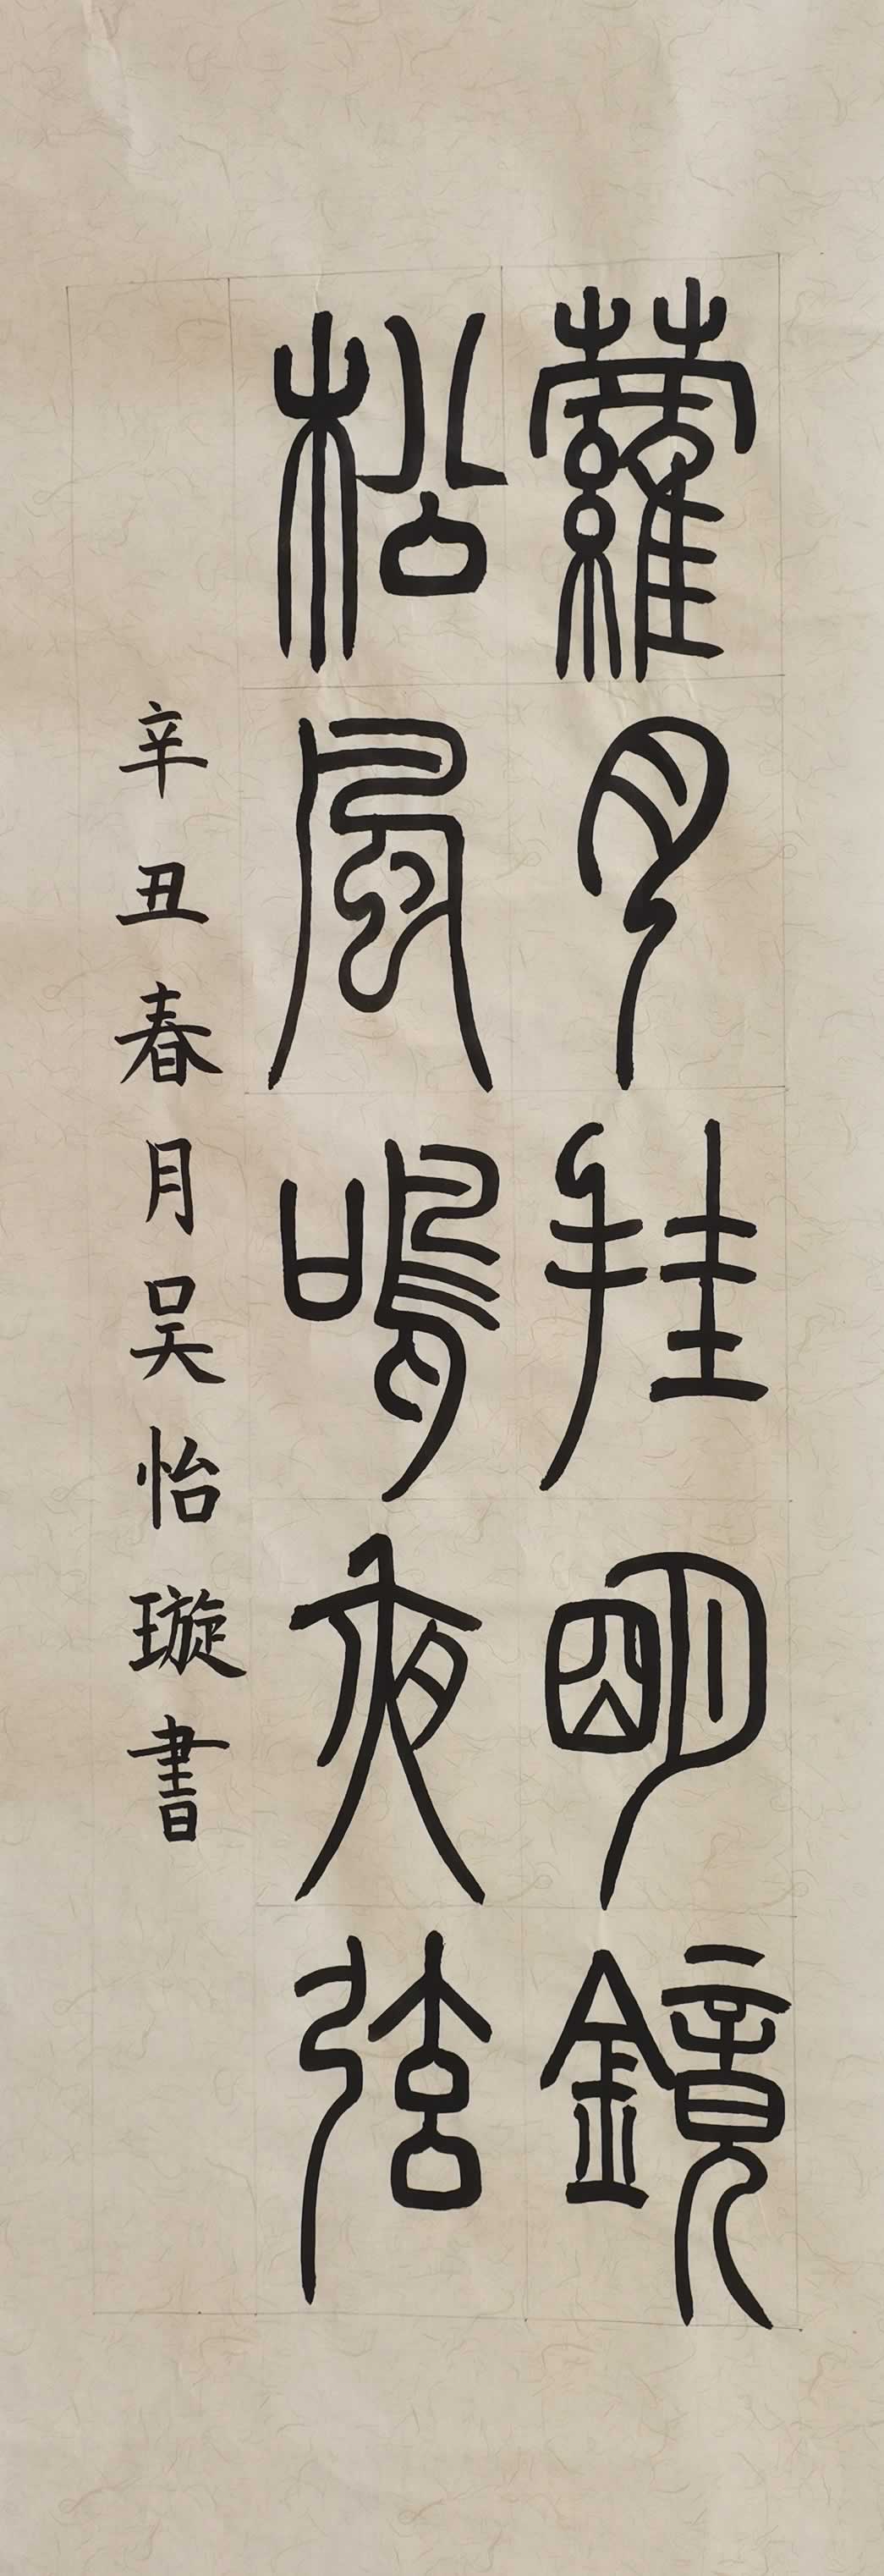 蘿月挂朙鏡
松風鳴夜弦
辛丑春月吴怡璇書